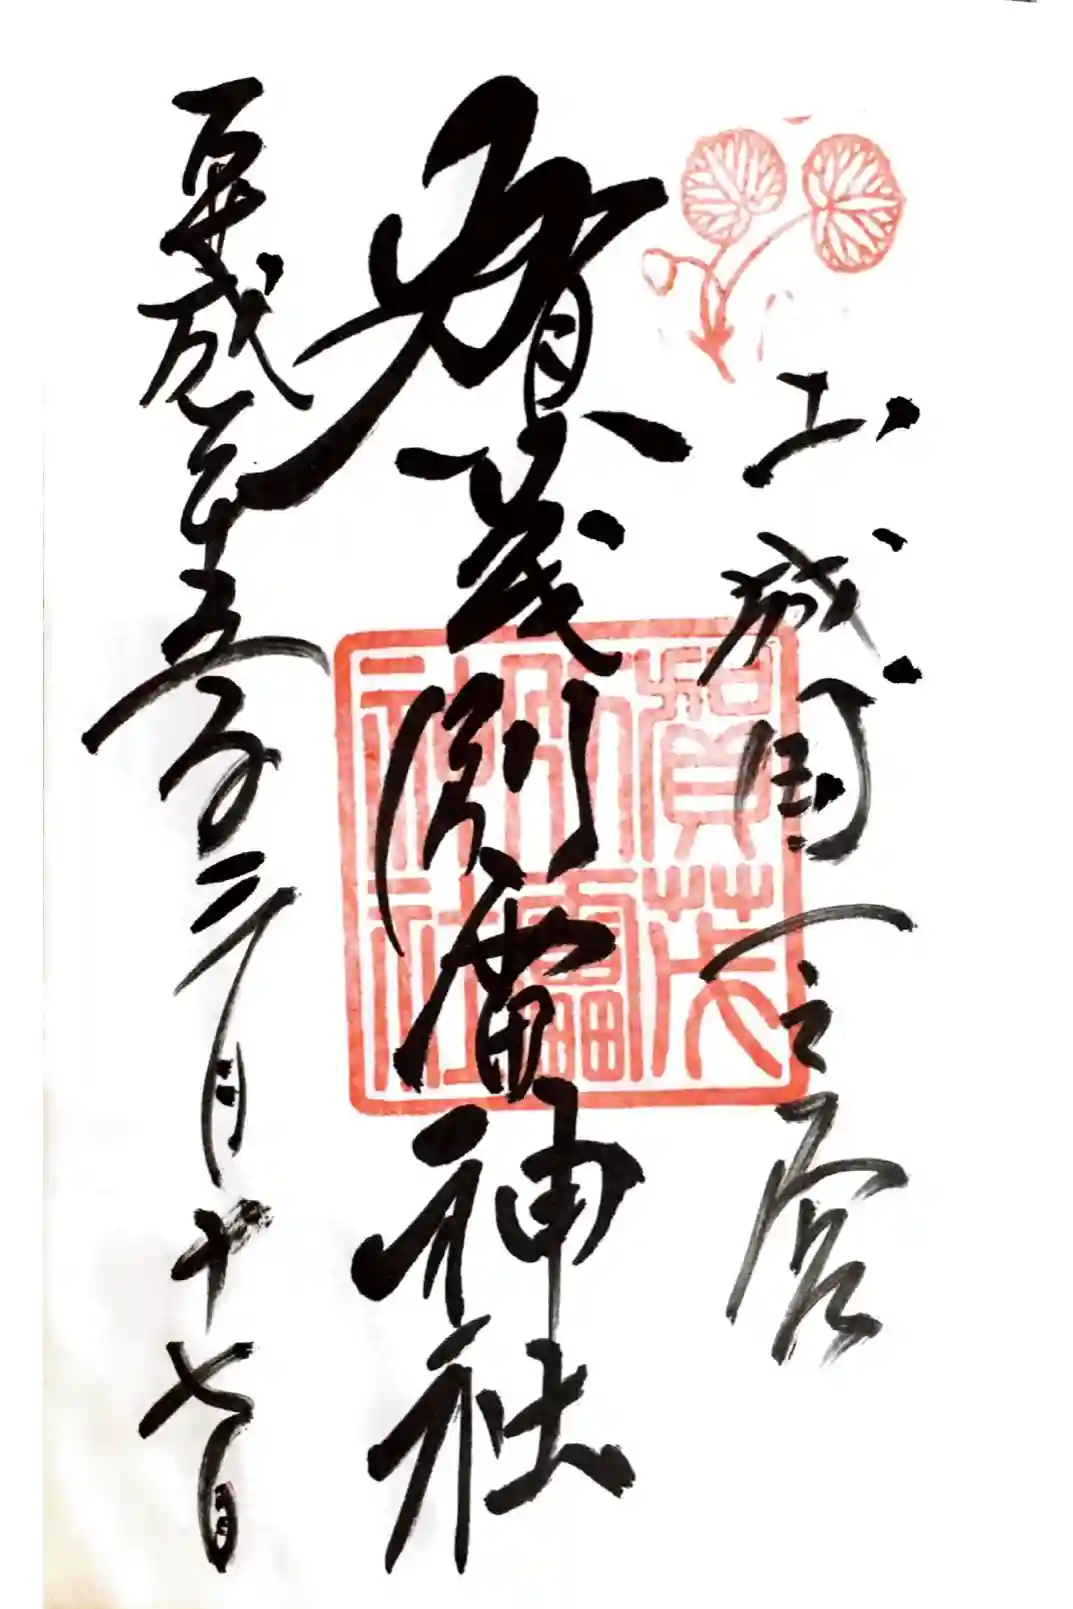 山城国一之宮
賀茂別雷神社
賀茂別雷神社
平成二十五年三月十七日